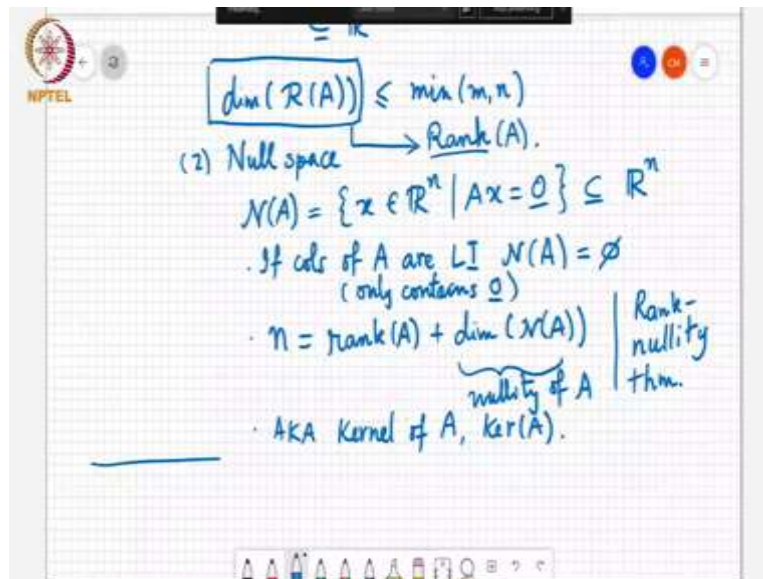 ⊆ ℝ
NPTEL
dim(R(A)) ≤ min(m,n)
→ Rank(A).
(2) Null space
N(A) = {x ∈ ℝⁿ | Ax = 0} ⊆ ℝⁿ
· If cols of A are LI N(A) = ∅
(only contains 0)
· n = rank(A) + dim(N(A))
nullity of A
Rank-
nullity
thm.
· AKA Kernel of A, Ker(A).